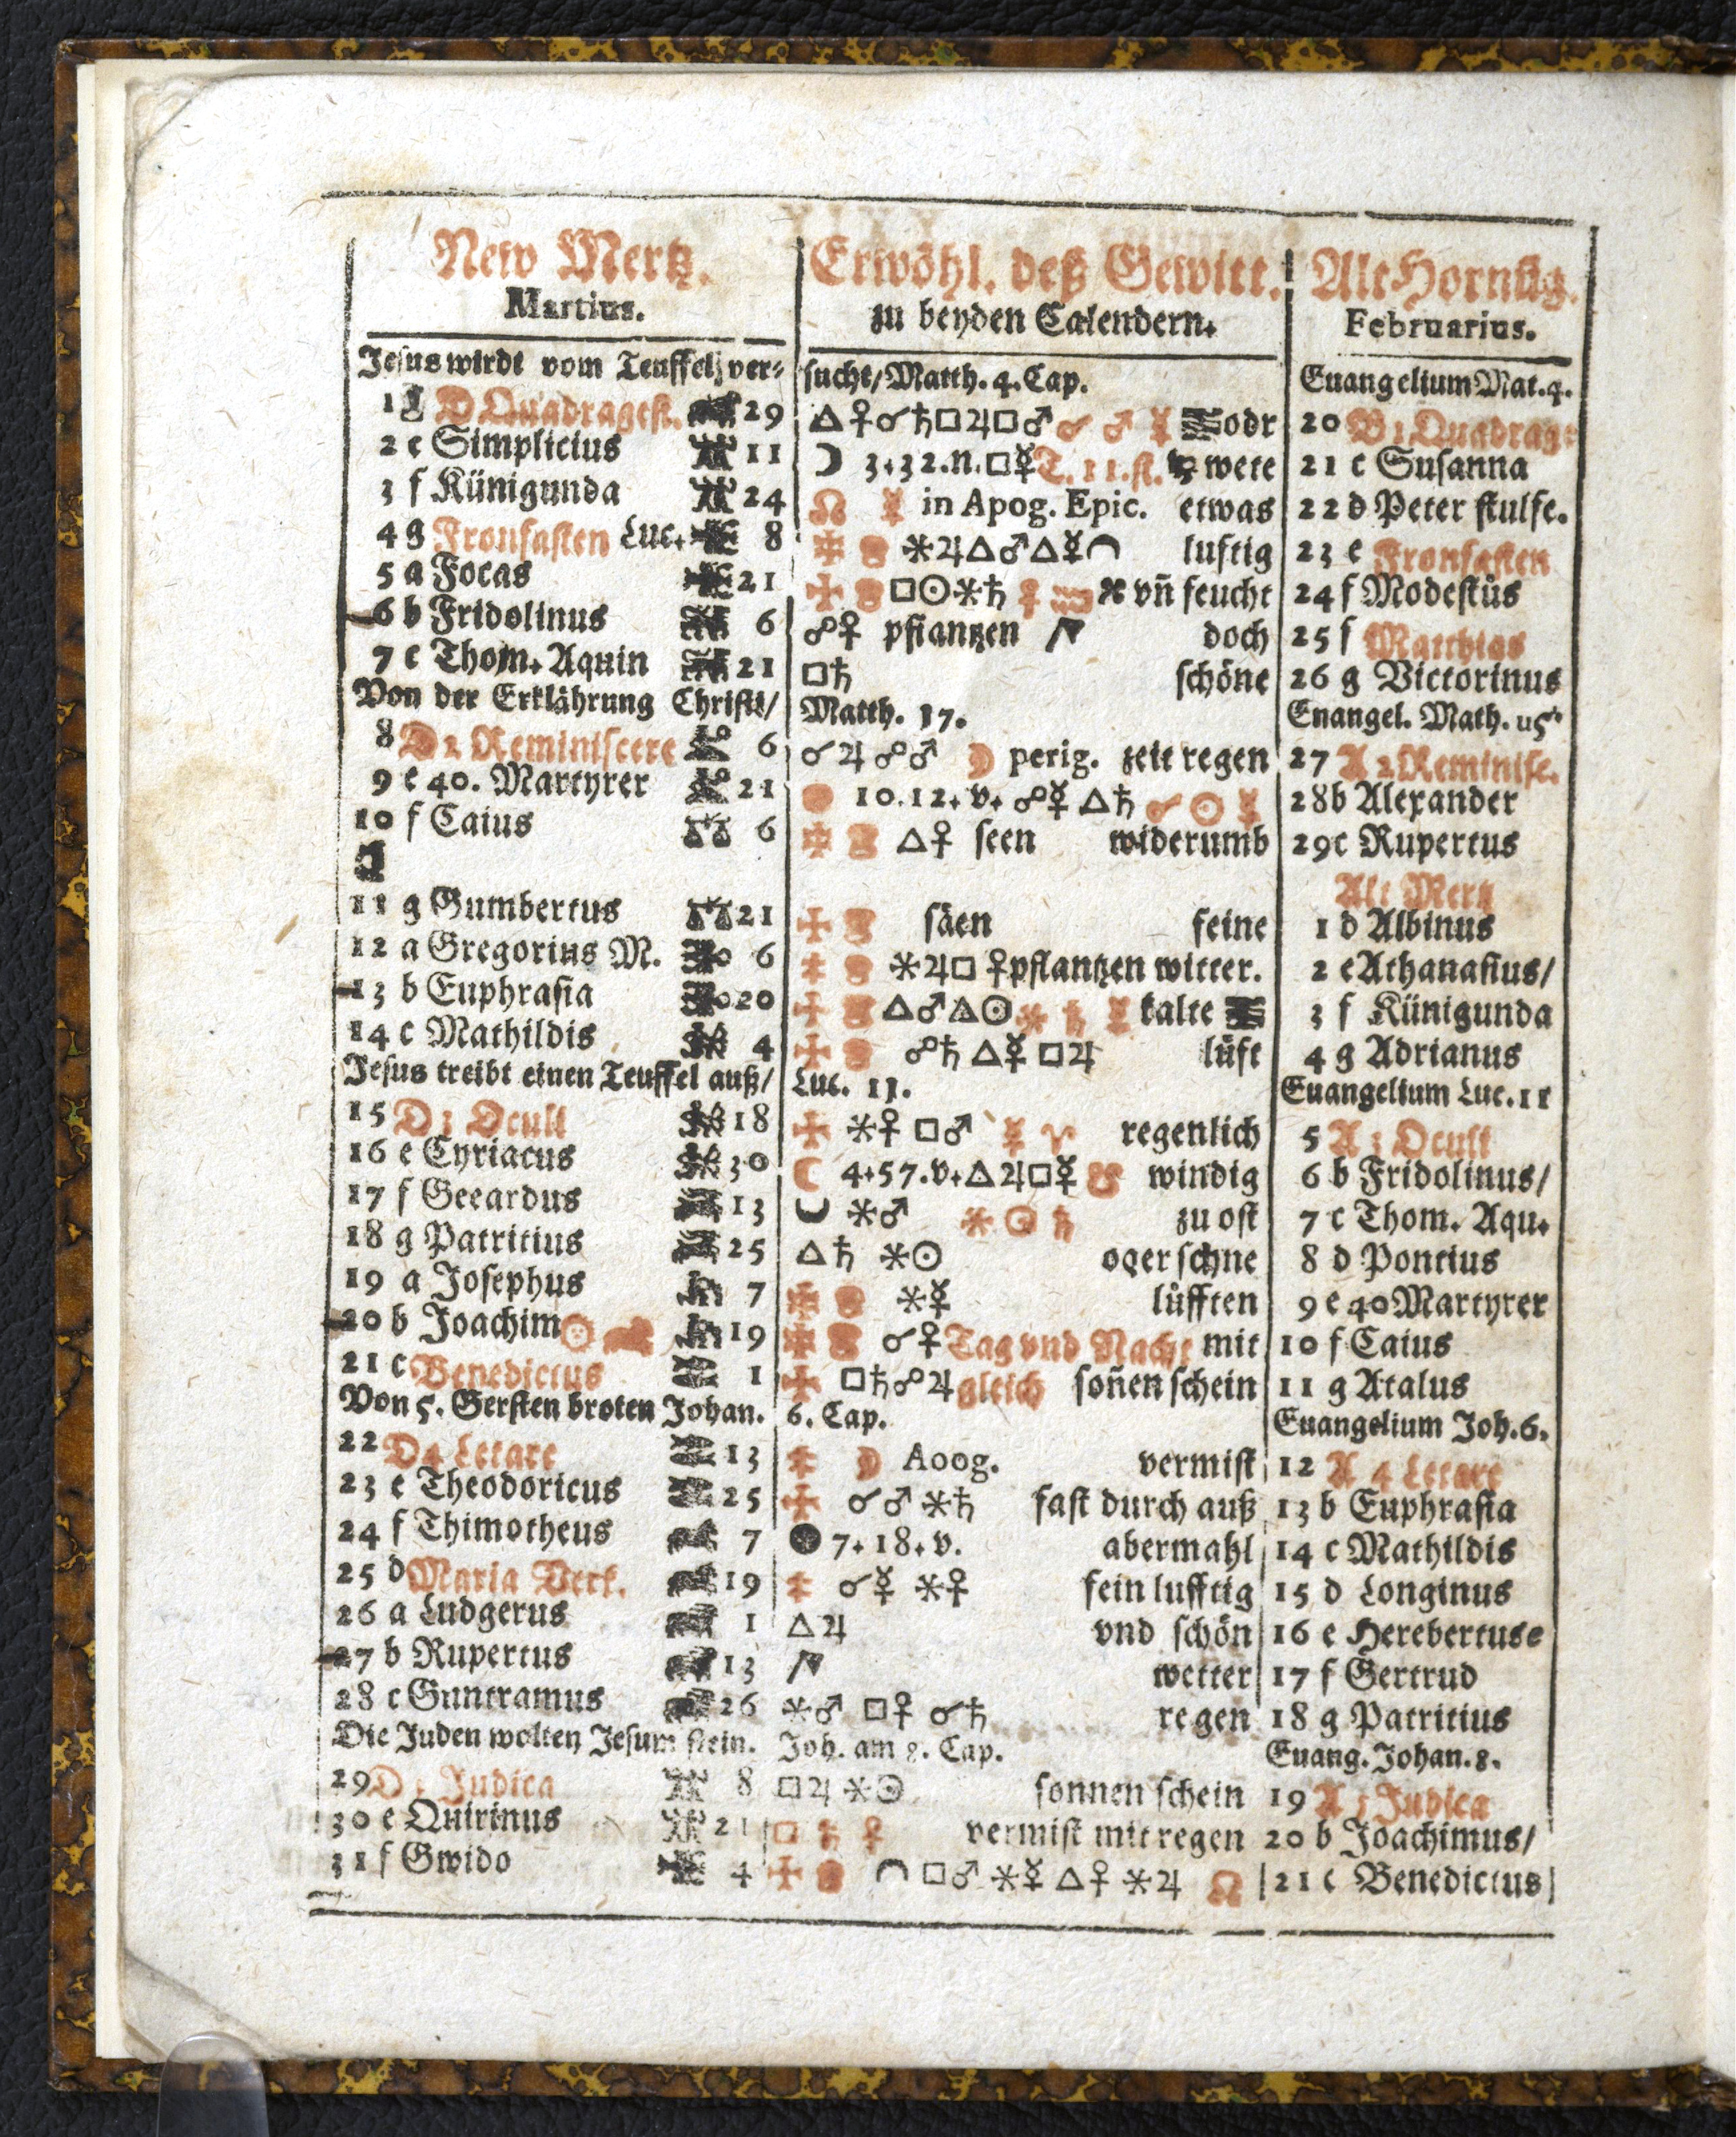 New Mertz. Erwöhl. deß Gewitt. Alt Hornüg.
Martius. zu beyden Calendern. Februarius.
Jesus wirdt vom Teuffel ver- sucht/Matth. 4. Cap. Euangelium Mat. 4.
1 D Quadragest. 29 △♀☌♄□♃□♂☌ ♂ ☿ odr 20 B 1 Quadrag
2 e Simplicius 11 ☽ 3.32.n.□☿ T. 11. st. wete 21 c Susanna
3 f Künigunda 24 ☊ ☿ in Apog. Epic. etwas 22 d Peter stulfe.
4 g Fronfasten Luc. 8 ⚹♃△♂△☿ luftig 23 e Fronfasten
5 a Focas 21 □☉⚹♄ ♀ vñ feucht 24 f Modestüs
6 b Fridolinus 6 ☍♀ pflantzen doch 25 f Matthias
7 c Thom. Aquin 21 □♄ schöne 26 g Victorinus
Von der Erklährung Christi/ Matth. 17. Enangel. Math. u5.
8 D 2 Reminiscere 6 ☌♃ ☍♂ ☽ perig. zeit regen 27 A 2 Reminisc.
9 e 40. Martyrer 21 10.12. v. ☍☿ △♄ ☌ ☉ ☿ 28 b Alexander
10 f Caius 6 △♀ seen widerumb 29 c Rupertus
Alt Mertz
11 g Gumbertus 21 säen feine 1 d Albinus
12 a Gregorius M. 6 ⚹♃□ ♀ pflantzen witter. 2 e Athanasius/
13 b Euphrasia 20 △♂△☉⚹ ♄ ☿ kalte 3 f Künigunda
14 c Mathildis 4 ☍♄ △☿ □♃ lüft 4 g Adrianus
Jesus treibt einen Teuffel auß/ Luc. 11. Euangelium Luc. 11
15 D 3 Oculi 18 ⚹♀ □♂ ☿ ♈ regenlich 5 A 3 Oculi
16 e Cyriacus 30 ☾ 4.57.v.△♃□☿ ☋ windig 6 b Fridolinus/
17 f Geeardus 13 ⚹♂ ⚹ ☉ ♄ zu ost 7 c Thom. Aqu.
18 g Patritius 25 △♄ ⚹☉ oder schne 8 d Pontius
19 a Josephus 7 ⚹☿ lüfften 9 e 40 Martyrer
20 b Joachim ☉ 19 ☌♀ Tag vnd Nacht mit 10 f Caius
21 c Benedictus 1 □♄☍♃ gleich soñen schein 11 g Atalus
Von 5. Gersten broten Johan. 6. Cap. Euangelium Joh. 6.
22 D 4 Letare 13 ☽ Aoog. vermist 12 A 4 Letare
23 e Theodoricus 25 ☌♂ ⚹♄ fast durch auß 13 b Euphrasia
24 f Thimotheus 7 ● 7. 18. v. abermahl 14 c Mathildis
25 d Maria Verk. 19 ☌☿ ⚹♀ fein lufftig 15 d Longinus
26 a Ludgerus 1 △♃ vnd schön 16 e Herebertuse
27 b Rupertus 13 wetter 17 f Gertrud
28 c Guntramus 26 ⚹♂ □♀ ☌♄ regen 18 g Patritius
Die Juden wolten Jesum stein. Joh. am 8. Cap. Euang. Johan. 8.
29 D 5 Judica 8 □♃ ⚹☉ sonnen schein 19 A 5 Judica
30 e Quirinus 21 □ ♄ ♀ vermist mit regen 20 b Joachimus/
31 f Gwido 4 □♂ ⚹☿ △♀ ⚹♃ ☊ 21 c Benedictus